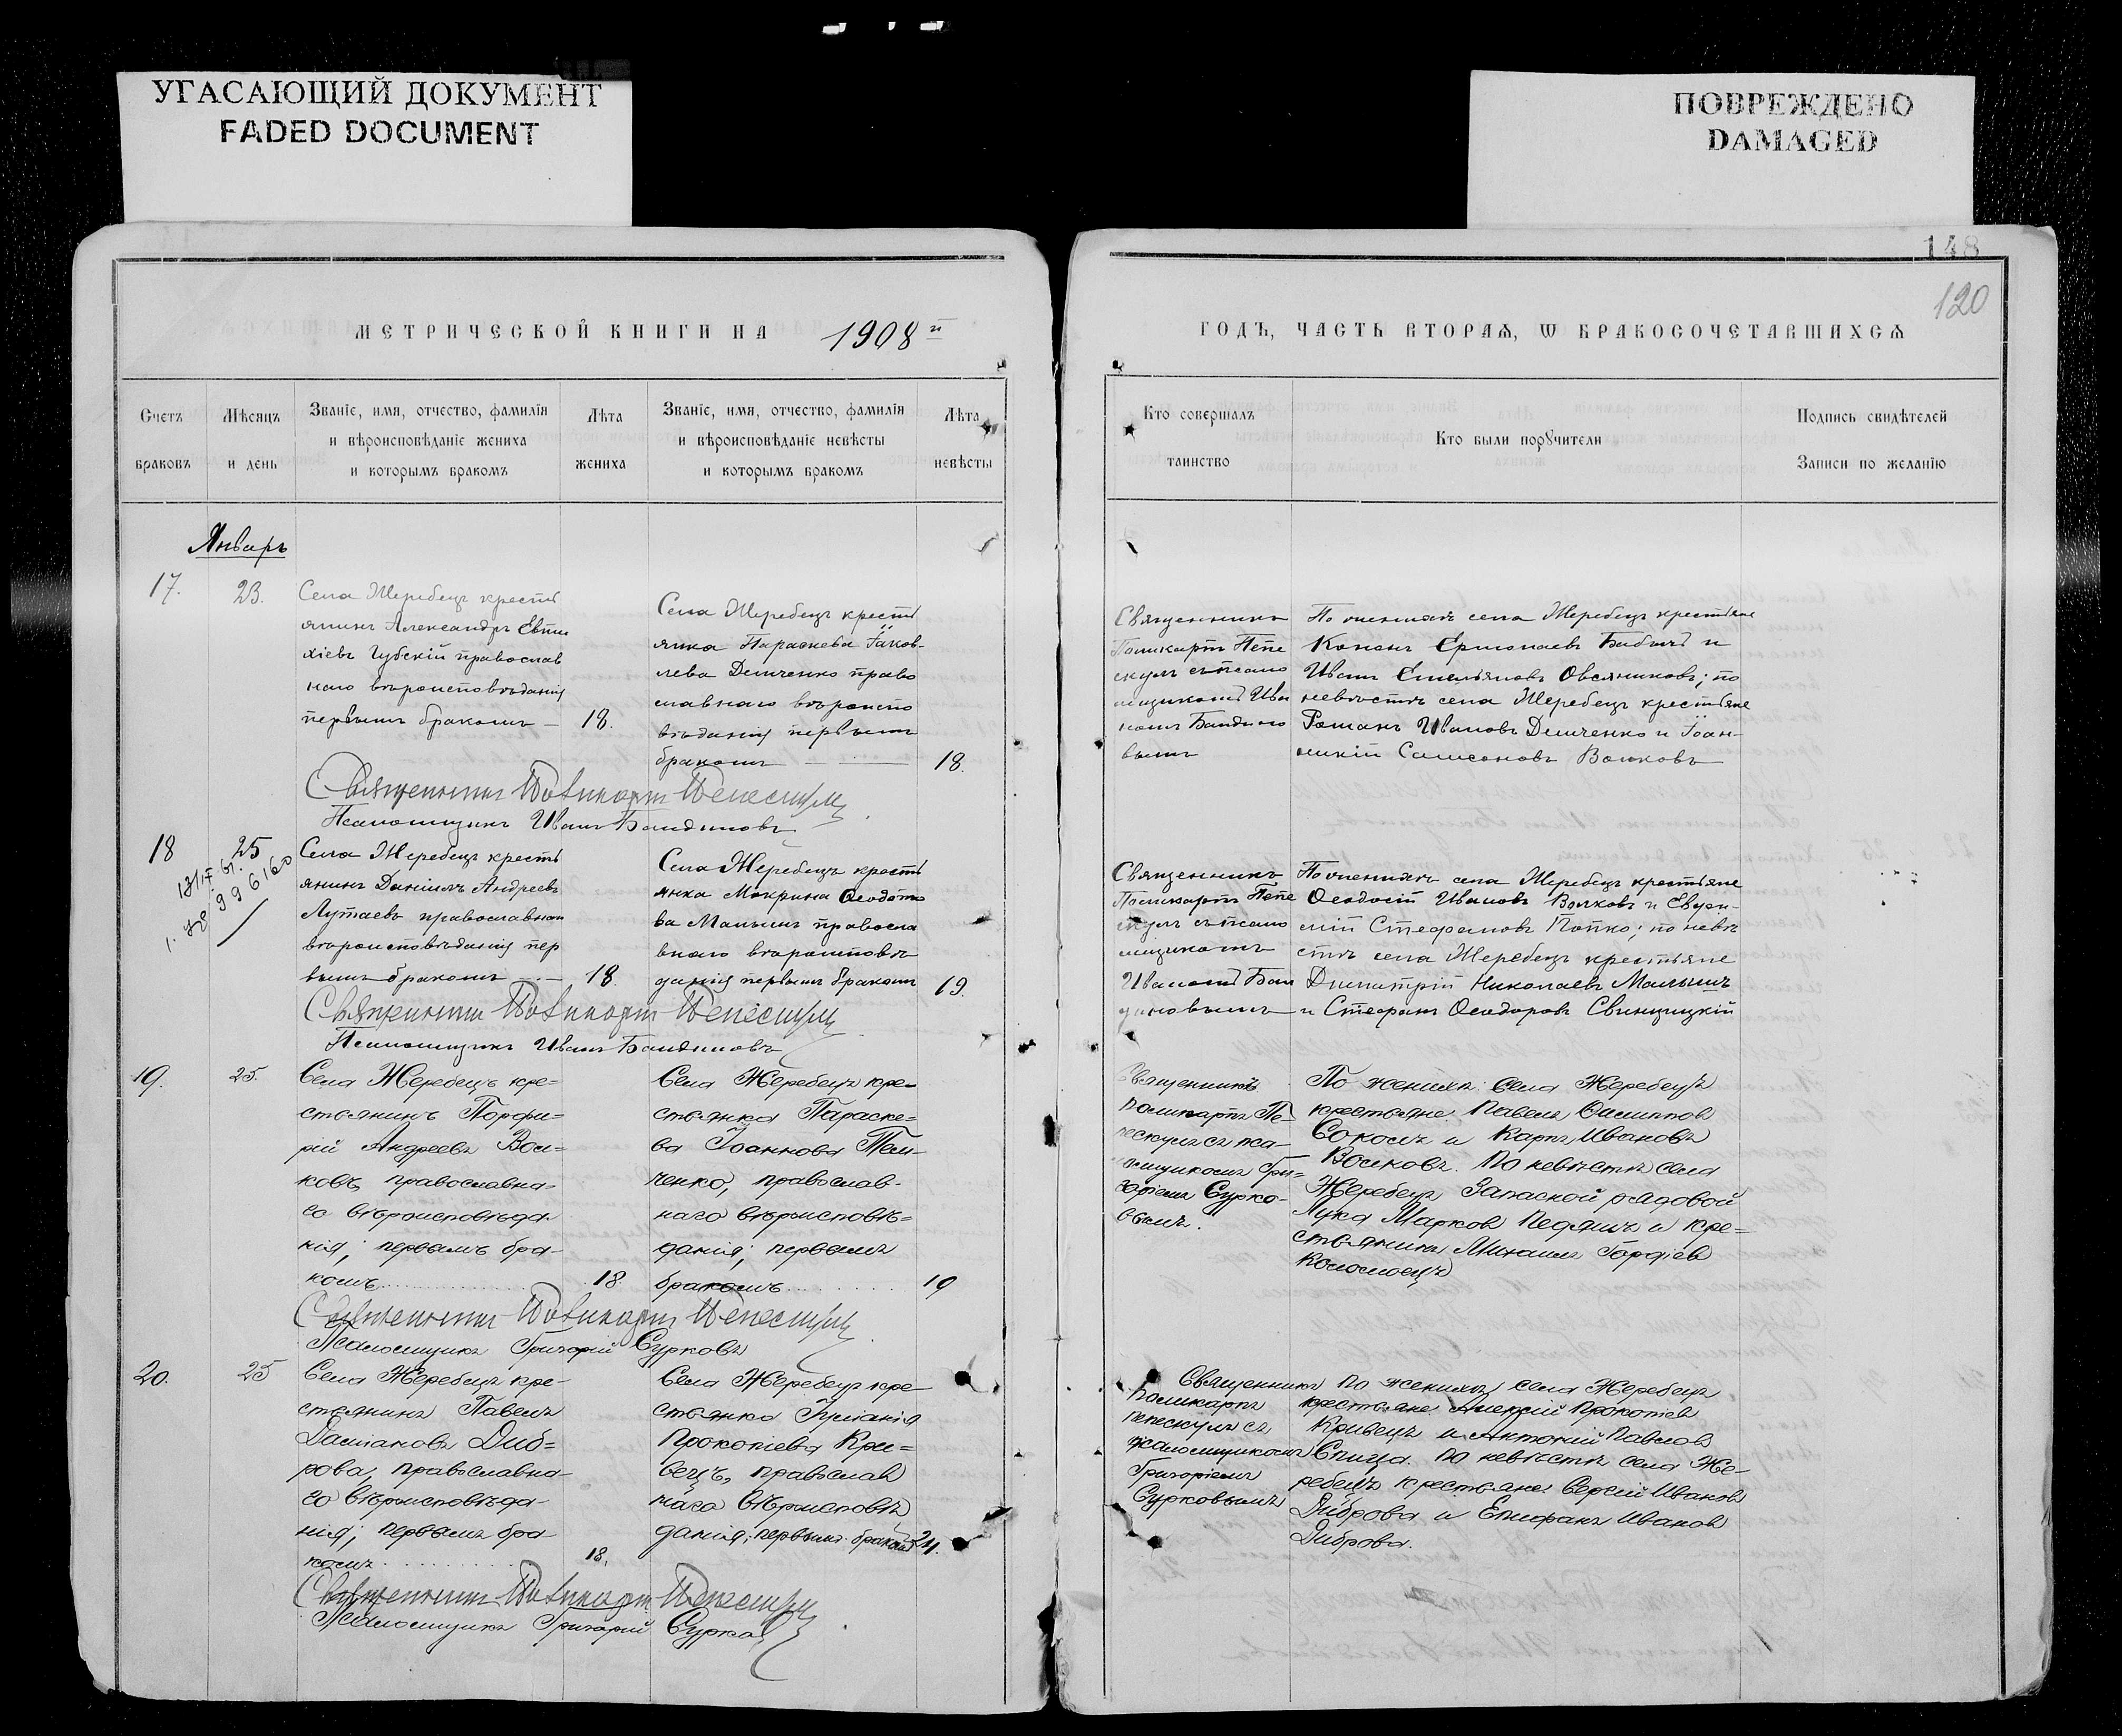 УГАСАЮЩИЙ ДОКУМЕНТ
FADED DOCUMENT
ПОВРЕЖДЕНО
DAMAGED
148
120
МЕТРИЧЕСКОЙ КНИГИ НА 1908 й
ГОДЪ, ЧАСТЬ ВТОРАЯ, Ѡ БРАКОСОЧЕТАВШИХСЯ
Счетъ
браковъ
Мѣсяцъ
и день
Званіе, имя, отчество, фамилія
и вѣроисповѣданіе жениха
и которымъ бракомъ
Лѣта
жениха
Званіе, имя, отчество, фамилія
и вѣроисповѣданіе невѣсты
и которымъ бракомъ
Лѣта
невѣсты
Кто совершалъ
таинство
Кто были порꙋчители
Подпись свидѣтелей
Записи по желанію
Январь
17.
23.
Села Жеребецъ кресть
янинъ Александръ Евти
хіевъ Губскій православ
наго вѣроисповѣданія
первымъ бракомъ —
18.
Села Жеребецъ кресть
янка Параскева Іаков-
лева Демченко право
славнаго вѣроиспо
вѣданія первымъ
бракомъ
18.
Священникъ
Поликарпъ Пепе
скулъ съ псало
мщикомъ Ива
номъ Бандино
вымъ
По женихѣ села Жеребецъ крестьяне
Кононъ Ермолаевъ Бабичъ и
Иванъ Емельяновъ Овсяниковъ; по
невѣстѣ села Жеребецъ крестьяне
Романъ Ивановъ Демченко и Іоан-
никій Самсоновъ Волковъ
Священникъ Поликарпъ Пепескулъ
Псаломщикъ Иванъ Бандиновъ
18
25
Села Жеребецъ кресть
янинъ Даніилъ Андреевъ
Лутаевъ православнаго
вѣроисповѣданія пер
вымъ бракомъ —
18.
Села Жеребецъ кресть
янка Макрина Ѳеодото
ва Малышъ правосла
внаго вѣроисповѣ
данія первымъ бракомъ
19.
Священникъ
Поликарпъ Пепе
скулъ съ псало
мщикомъ
Иваномъ Бан
диновымъ
По женихѣ села Жеребецъ крестьяне
Ѳеодосій Ивановъ Волковъ и Евѳи-
мій Стефановъ Попко; по невѣ
стѣ села Жеребецъ крестьяне
Димитрій Николаевъ Малышъ
и Стефанъ Ѳеодоровъ Свинцицкій
Священникъ Поликарпъ Пепескулъ
Псаломщикъ Иванъ Бандиновъ
19.
25.
Села Жеребецъ кре=
стьянинъ Порфи=
рій Андреевъ Вол=
ковъ, православна=
го вѣроисповѣда-
нія; первымъ бра-
комъ
18.
Села Жеребецъ кре=
стьянка Параске=
ва Іоаннова Тем-
ченко, православ-
наго вѣроисповѣ=
данія; первымъ
бракомъ
19
Священникъ
Поликарпъ Пе-
пескулъ съ пса-
ломщикомъ Гри=
горіемъ Сурко-
вымъ.
По женихѣ: Села Жеребецъ
крестьяне Павелъ Филиппов
Соколъ и Карпъ Ивановъ
Волковъ. По невѣстѣ села
Жеребецъ Запасной рядовой
Лука Марков Педяшъ и кре=
стьянинъ Михаилъ Гордіев
Коломоецъ
Священникъ Поликарпъ Пепескулъ
Псаломщикъ Григорій Сурковъ
20.
25
Села Жеребецъ кре-
стьянинъ Павелъ
Даміановъ Диб=
рова, православна-
го вѣроисповѣда-
нія; первымъ бра-
комъ
18.
Села Жеребецъ кре-
стьянка Іуліанія
Прокопіева Кри=
вецъ, православ
наго вѣроисповѣ
данія; первымъ бракомъ
21.
Священникъ
Поликарпъ
Пепескулъ съ
псаломщикомъ
Григоріемъ
Сурковымъ
По женихѣ, села Жеребецъ
крестьяне: Алексій Прокопіев
Кривецъ и Антоній Павлов
Спица. По невѣстѣ села Же-
ребецъ крестьяне: Сергій Иванов
Диброва и Епифанъ Иванов
Диброва.
Священникъ Поликарпъ Пепескулъ
Псаломщикъ Григорій Сурков